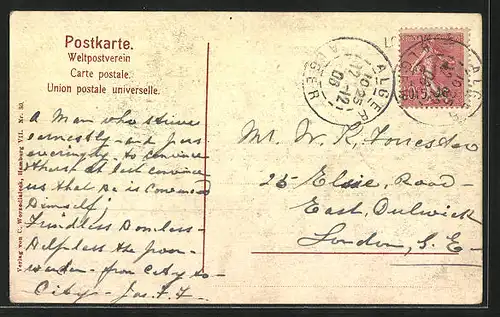 Postkarte.
Weltpostverein
Carte postale.
Union postale universelle.
ALGER
10 25
17-12
08
ALGER
A Man who strives
earnestly and per
severingly to convince
others at last convince
us that he is convinced
Himself
Friendless Homeless
Helpless the poor
wander from City to
City - Jas. F. F.
Mr W. R.
25 Elsie Road
East Dulwich
London, S. E.
Verlag von C. Worzedialeck, Hamburg VII. Nr. 50.